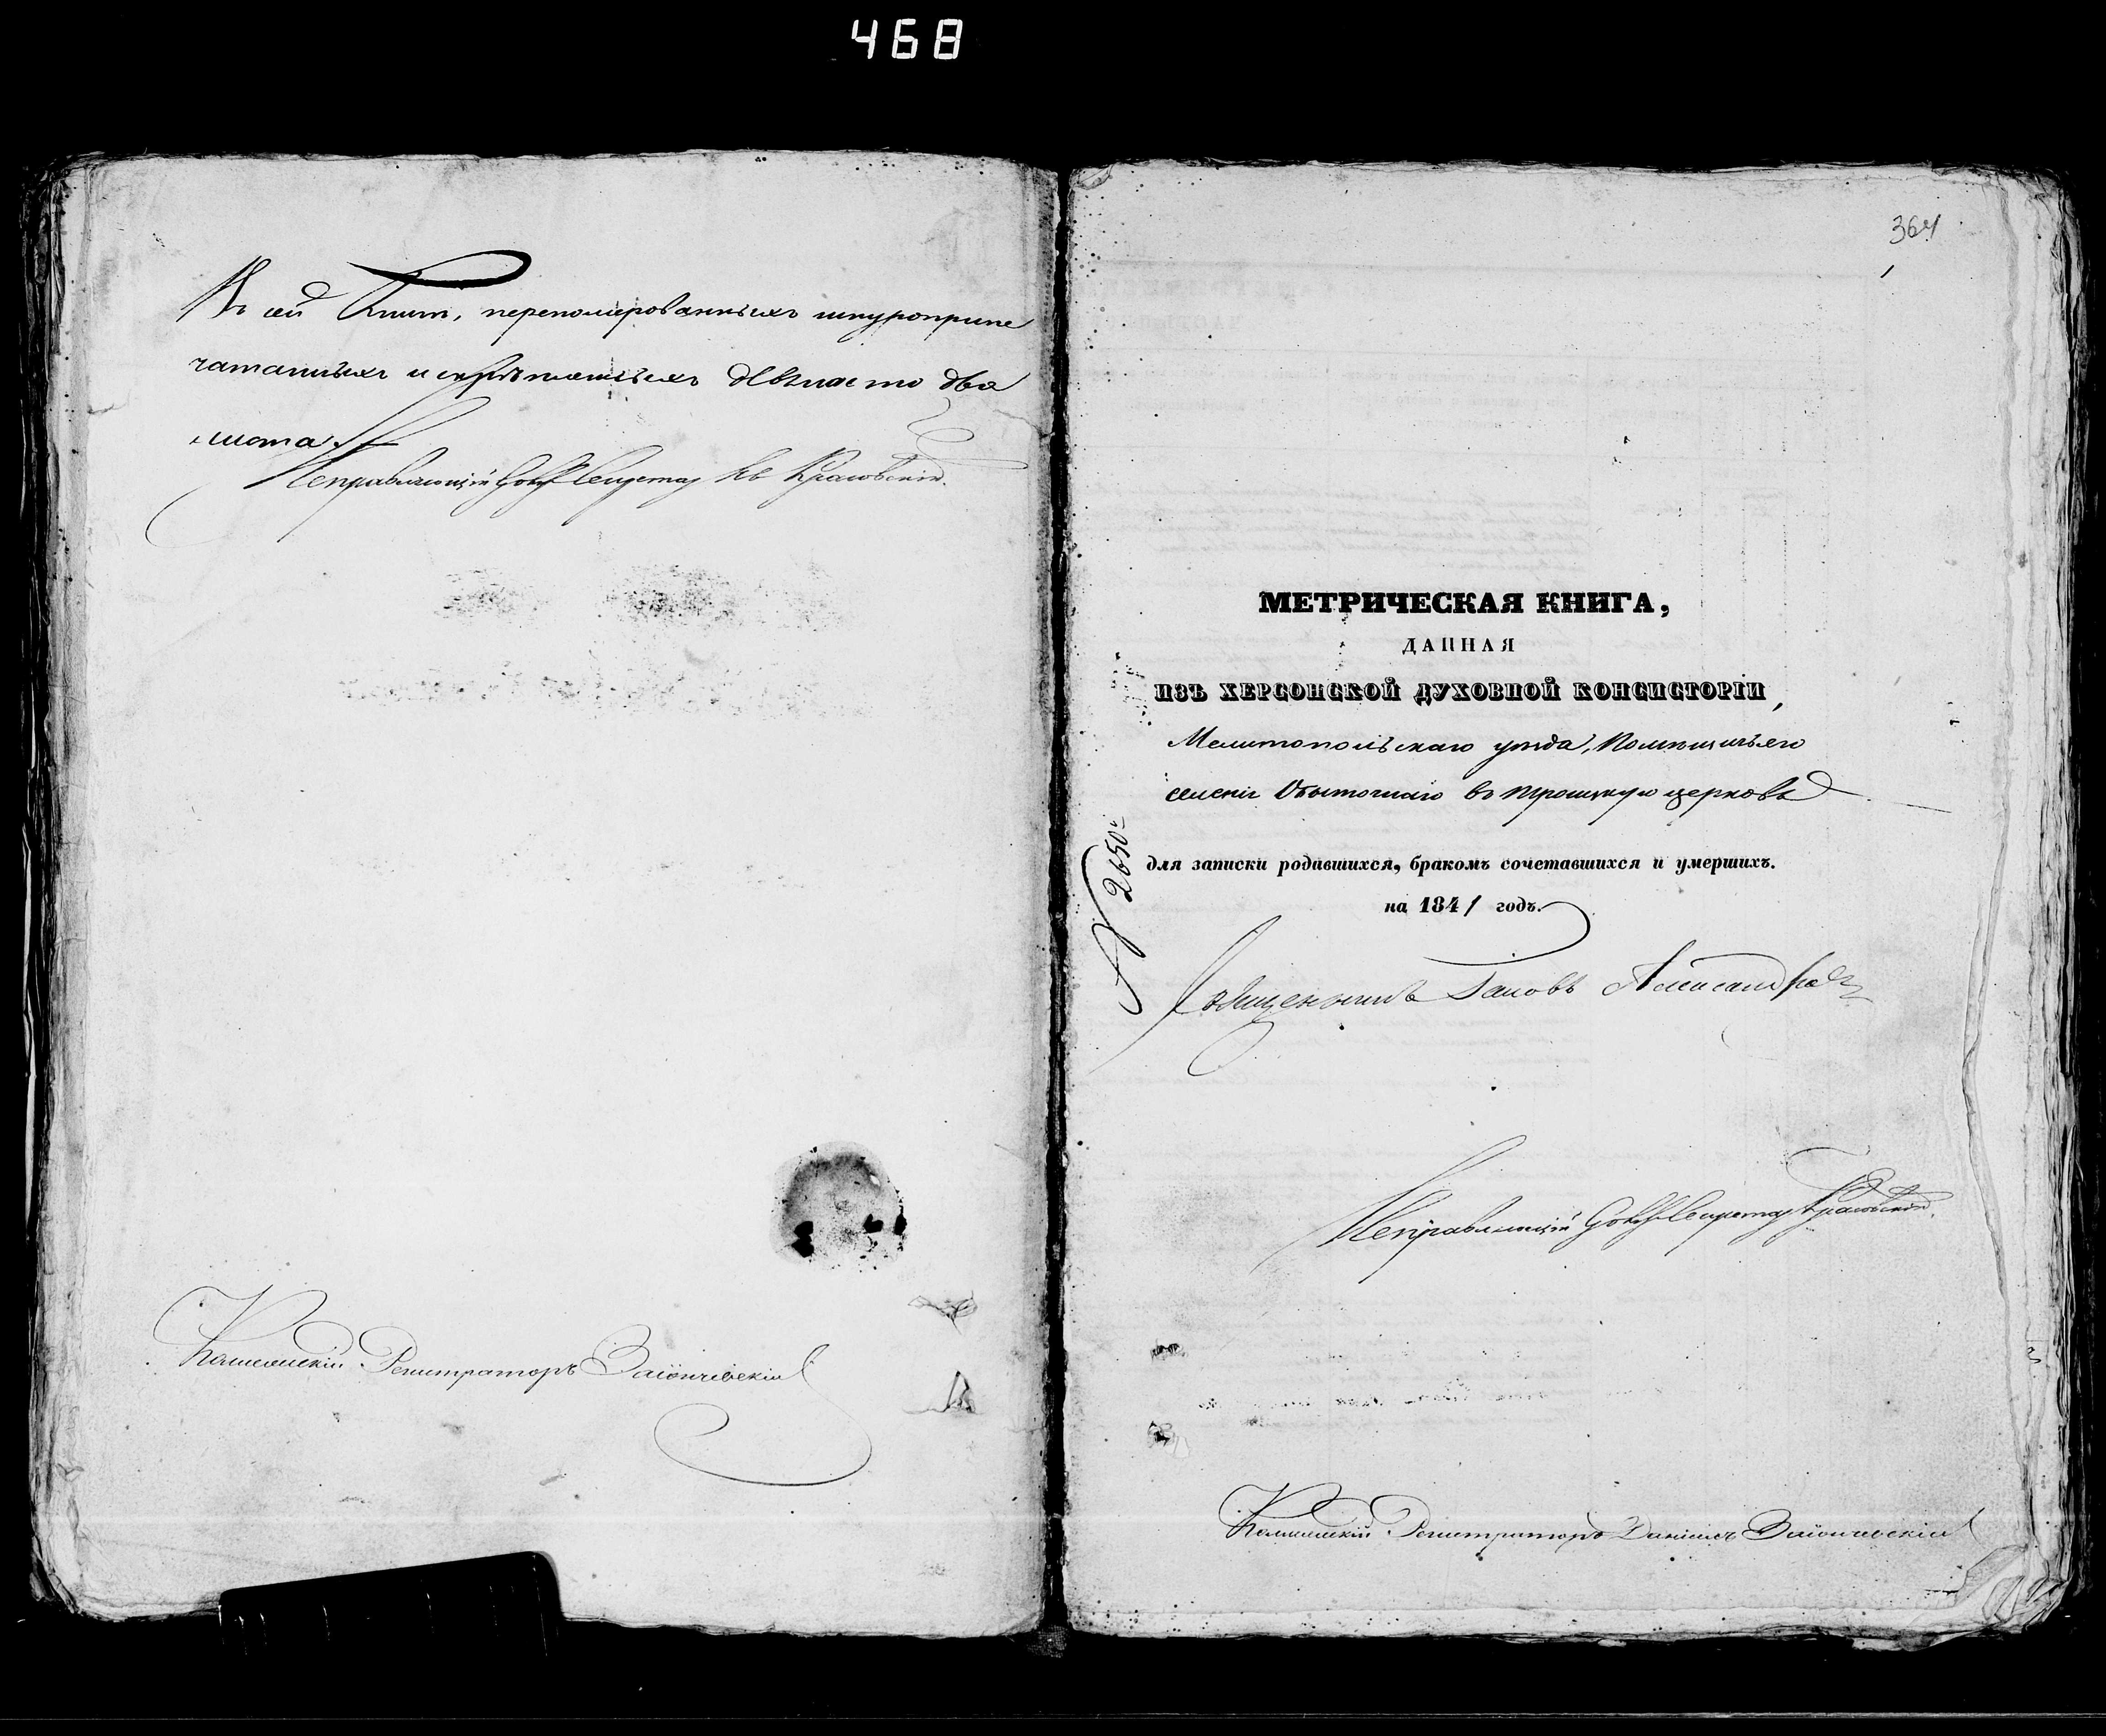 468
Въ сей Книгѣ, переномерованныхъ шнуроприпе
чатанныхъ и скрѣпленныхъ девяносто два
листа.
Исправляющій Секретар Красовскій.
Коллежскій Регистраторъ Заіончевскій
364
1
МЕТРИЧЕСКАЯ КНИГА,
ДАННАЯ
ИЗЪ ХЕРСОНСКОЙ ДУХОВНОЙ КОНСИСТОРІИ,
Мелитопольскаго уѣзда, Помѣщичьяго
селенія Обыточнаго въ Троицкую церковь
№ 2650
для записки родившихся, бракомъ сочетавшихся и умершихъ.
на 1841 годъ.
Священникъ Іаковъ Александров
Исправляющій Секретар Красовскій.
Коллежскій Регистраторъ Даніилъ Заіончевскій